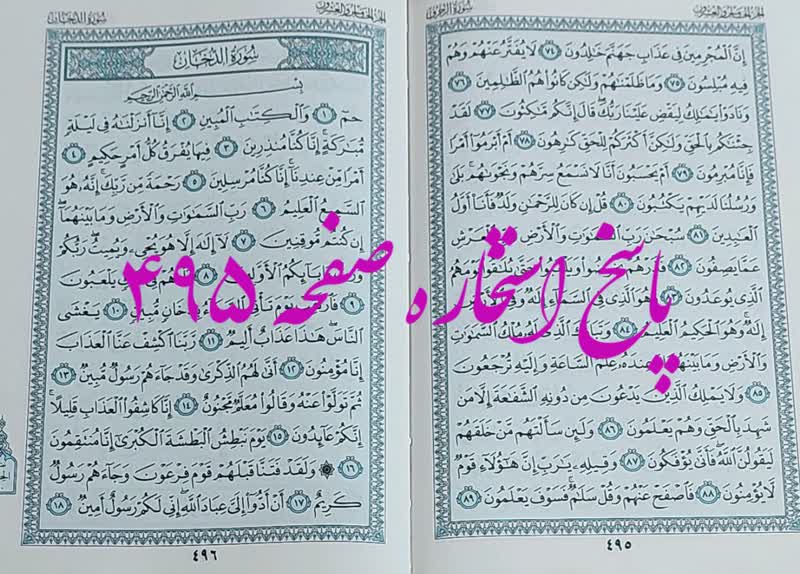 الجزء الخامس والعشرون
سورة الزخرف
إِنَّ الْمُجْرِمِينَ فِي عَذَابِ جَهَنَّمَ خَالِدُونَ ٧٤ لَا يُفَتَّرُ عَنْهُمْ وَهُمْ
فِيهِ مُبْلِسُونَ ٧٥ وَمَا ظَلَمْنَاهُمْ وَلَٰكِن كَانُوا هُمُ الظَّالِمِينَ ٧٦
وَنَادَوْا يَا مَالِكُ لِيَقْضِ عَلَيْنَا رَبُّكَ قَالَ إِنَّكُم مَّاكِثُونَ ٧٧ لَقَدْ
جِئْنَاكُم بِالْحَقِّ وَلَٰكِنَّ أَكْثَرَكُمْ لِلْحَقِّ كَارِهُونَ ٧٨ أَمْ أَبْرَمُوا أَمْرًا
فَإِنَّا مُبْرِمُونَ ٧٩ أَمْ يَحْسَبُونَ أَنَّا لَا نَسْمَعُ سِرَّهُمْ وَنَجْوَاهُم بَلَىٰ
وَرُسُلُنَا لَدَيْهِمْ يَكْتُبُونَ ٨٠ قُلْ إِن كَانَ لِلرَّحْمَٰنِ وَلَدٌ فَأَنَا أَوَّلُ
الْعَابِدِينَ ٨١ سُبْحَانَ رَبِّ السَّمَاوَاتِ وَالْأَرْضِ رَبِّ الْعَرْشِ
عَمَّا يَصِفُونَ ٨٢ فَذَرْهُمْ يَخُوضُوا وَيَلْعَبُوا حَتَّىٰ يُلَاقُوا يَوْمَهُمُ
الَّذِي يُوعَدُونَ ٨٣ وَهُوَ الَّذِي فِي السَّمَاءِ إِلَٰهٌ وَفِي الْأَرْضِ
إِلَٰهٌ وَهُوَ الْحَكِيمُ الْعَلِيمُ ٨٤ وَتَبَارَكَ الَّذِي لَهُ مُلْكُ السَّمَاوَاتِ
وَالْأَرْضِ وَمَا بَيْنَهُمَا وَعِندَهُ عِلْمُ السَّاعَةِ وَإِلَيْهِ تُرْجَعُونَ
٨٥ وَلَا يَمْلِكُ الَّذِينَ يَدْعُونَ مِن دُونِهِ الشَّفَاعَةَ إِلَّا مَن
شَهِدَ بِالْحَقِّ وَهُمْ يَعْلَمُونَ ٨٦ وَلَئِن سَأَلْتَهُم مَّنْ خَلَقَهُمْ
لَيَقُولُنَّ اللَّهُ فَأَنَّىٰ يُؤْفَكُونَ ٨٧ وَقِيلِهِ يَا رَبِّ إِنَّ هَٰؤُلَاءِ قَوْمٌ
لَّا يُؤْمِنُونَ ٨٨ فَاصْفَحْ عَنْهُمْ وَقُلْ سَلَامٌ فَسَوْفَ يَعْلَمُونَ ٨٩
٤٩٥
الجزء الخامس والعشرون
سورة الدخان
سُورَةُ الدُّخَانِ
بِسْمِ اللَّهِ الرَّحْمَٰنِ الرَّحِيمِ
حم ١ وَالْكِتَابِ الْمُبِينِ ٢ إِنَّا أَنزَلْنَاهُ فِي لَيْلَةٍ
مُّبَارَكَةٍ إِنَّا كُنَّا مُنذِرِينَ ٣ فِيهَا يُفْرَقُ كُلُّ أَمْرٍ حَكِيمٍ ٤
أَمْرًا مِّنْ عِندِنَا إِنَّا كُنَّا مُرْسِلِينَ ٥ رَحْمَةً مِّن رَّبِّكَ إِنَّهُ هُوَ
السَّمِيعُ الْعَلِيمُ ٦ رَبِّ السَّمَاوَاتِ وَالْأَرْضِ وَمَا بَيْنَهُمَا
إِن كُنتُم مُّوقِنِينَ ٧ لَا إِلَٰهَ إِلَّا هُوَ يُحْيِي وَيُمِيتُ رَبُّكُمْ
وَرَبُّ آبَائِكُمُ الْأَوَّلِينَ ٨ بَلْ هُمْ فِي شَكٍّ يَلْعَبُونَ
٩ فَارْتَقِبْ يَوْمَ تَأْتِي السَّمَاءُ بِدُخَانٍ مُّبِينٍ ١٠ يَغْشَى
النَّاسَ هَٰذَا عَذَابٌ أَلِيمٌ ١١ رَّبَّنَا اكْشِفْ عَنَّا الْعَذَابَ
إِنَّا مُؤْمِنُونَ ١٢ أَنَّىٰ لَهُمُ الذِّكْرَىٰ وَقَدْ جَاءَهُمْ رَسُولٌ مُّبِينٌ ١٣
ثُمَّ تَوَلَّوْا عَنْهُ وَقَالُوا مُعَلَّمٌ مَّجْنُونٌ ١٤ إِنَّا كَاشِفُو الْعَذَابِ قَلِيلًا
إِنَّكُمْ عَائِدُونَ ١٥ يَوْمَ نَبْطِشُ الْبَطْشَةَ الْكُبْرَىٰ إِنَّا مُنتَقِمُونَ
١٦ وَلَقَدْ فَتَنَّا قَبْلَهُمْ قَوْمَ فِرْعَوْنَ وَجَاءَهُمْ رَسُولٌ
كَرِيمٌ ١٧ أَنْ أَدُّوا إِلَيَّ عِبَادَ اللَّهِ إِنِّي لَكُمْ رَسُولٌ أَمِينٌ ١٨
٤٩٦
پاسخ استخاره صفحه ۴۹۵